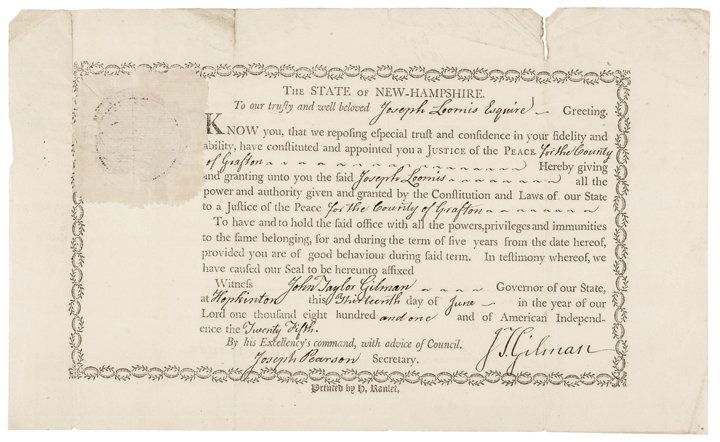 THE STATE OF NEW-HAMPSHIRE.
To our trusty and well beloved Joseph Loomis Esquire Greeting.
KNOW you, that we reposing especial trust and confidence in your fidelity and
ability, have constituted and appointed you a JUSTICE of the PEACE for the County
of Grafton Hereby giving
and granting unto you the said Joseph Loomis all the
power and authority given and granted by the Constitution and Laws of our State
to a Justice of the Peace for the County of Grafton
To have and to hold the said office with all the powers, privileges and immunities
to the same belonging, for and during the term of five years from the date hereof,
provided you are of good behaviour during said term. In testimony whereof, we
have caused our Seal to be hereunto affixed
Witness John Taylor Gilman Governor of our State,
at Hopkinton this Thirteenth day of June in the year of our
Lord one thousand eight hundred and one and of American Independ-
ence the Twenty Fifth.
By his Excellency's command, with advice of Council.
J T Gilman
Joseph Pearson Secretary.
Printed by H. Ranlet.